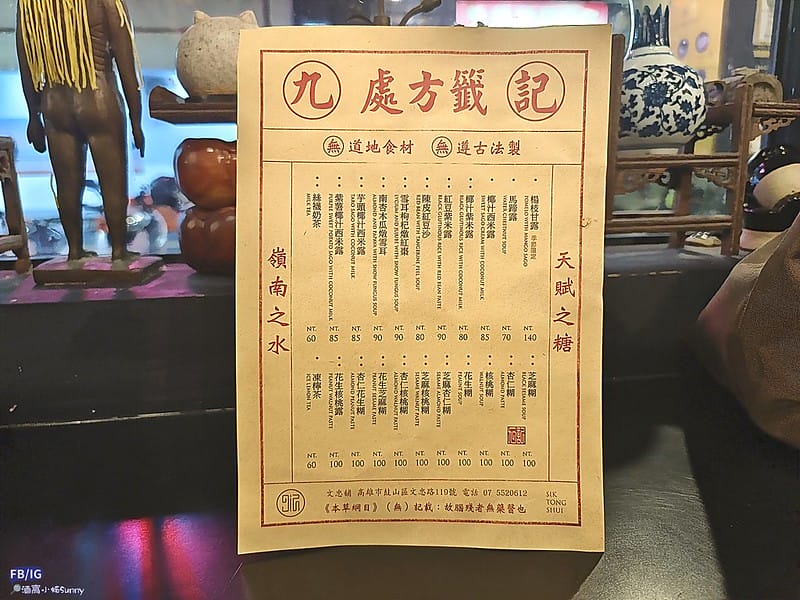 九 處方籤 記
無 道地食材 無 遵古法製
天賦之糖
楊枝甘露
POMELO WITH MANGO SAGO
NT. 140
馬蹄露
WATER CHESTNUT SOUP
NT. 70
椰汁西米露
SWEET SAGO CREAM WITH COCONUT MILK
NT. 85
椰汁紫米露
BLACK GLUTINOUS RICE WITH COCONUT MILK
NT. 80
紅豆紫米露
BLACK GLUTINOUS RICE WITH RED BEAN PASTE
NT. 90
陳皮紅豆沙
RED BEAN WITH TANGERINE PEEL SOUP
NT. 80
雪耳枸杞燉紅棗
LYCIUM AND JUJUBE WITH SNOW FUNGUS SOUP
NT. 90
南杏木瓜燉雪耳
ALMOND AND PAPAYA WITH SNOW FUNGUS SOUP
NT. 90
芋頭椰汁西米露
TARO SAGO WITH COCONUT MILK
NT. 85
紫薯椰汁西米露
PURPLE SWEET POTATO SAGO WITH COCONUT MILK
NT. 85
絲襪奶茶
MILK TEA
NT. 60
芝麻糊
BLACK SESAME SOUP
NT. 100
杏仁糊
ALMOND PASTE
NT. 100
核桃糊
WALNUT SOUP
NT. 100
花生糊
PEANUT SOUP
NT. 100
芝麻杏仁糊
SESAME ALMOND PASTE
NT. 100
芝麻核桃糊
SESAME WALNUT PASTE
NT. 100
杏仁核桃糊
ALMOND WALNUT PASTE
NT. 100
花生芝麻糊
PEANUT SESAME PASTE
NT. 100
杏仁花生糊
ALMOND PEANUT PASTE
NT. 100
花生核桃露
PEANUT WALNUT PASTE
NT. 100
凍檸茶
ICE LEMON TEA
NT. 60
嶺南之水
文忠舖 高雄市鼓山區文忠路119號 電話 07 5520612
《本草綱目》（無）記載：故腦殘者無藥醫也
SIK
TONG
SHUI
FB/IG
酒高小姐Sunny